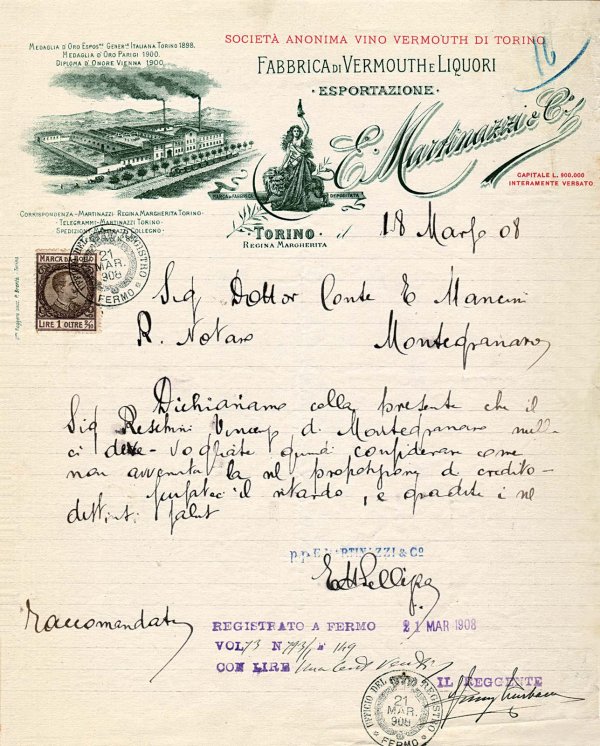 Medaglia d'Oro Espos.ne Gener.le Italiana Torino 1898.
Medaglia d'Oro Parigi 1900.
Diploma d'Onore Vienna 1900.
SOCIETÀ ANONIMA VINO VERMOUTH DI TORINO
16
FABBRICA DI VERMOUTH E LIQUORI
· ESPORTAZIONE ·
E. Martinazzi & C.
CAPITALE L. 900.000
INTERAMENTE VERSATO
MARCA DI FABBRICA DEPOSITATA
CORRISPONDENZA - MARTINAZZI REGINA MARGHERITA TORINO -
- TELEGRAMMI - MARTINAZZI TORINO -
SPEDIZIONI MARTINAZZI COLLEGNO -
TORINO
REGINA MARGHERITA
il 18 Marzo 08
MARCA DA BOLLO
LIRE 1 OLTRE 2/10
UFFICIO DEL REGISTRO
21
MAR.
908
FERMO
Sig Dottor Conte E Mancini
R. Notaro Montegranaro
Dichiariamo colla presente che il
Sig Reschini Vincenzo di Montegranaro nulla
ci deve - Vogliate quindi considerare come
non avvenuta la ns proposizione di credito -
Scusateci il ritardo, e gradite i ns
distinti saluti
p.p. E. MARTINAZZI & Cº
Raccomandata
REGISTRATO A FERMO 21 MAR 1908
VOL 73 N 793 F 149
CON LIRE Una Cent Venti
IL REGGENTE
UFFICIO DEL REGISTRO
21
MAR.
908
FERMO